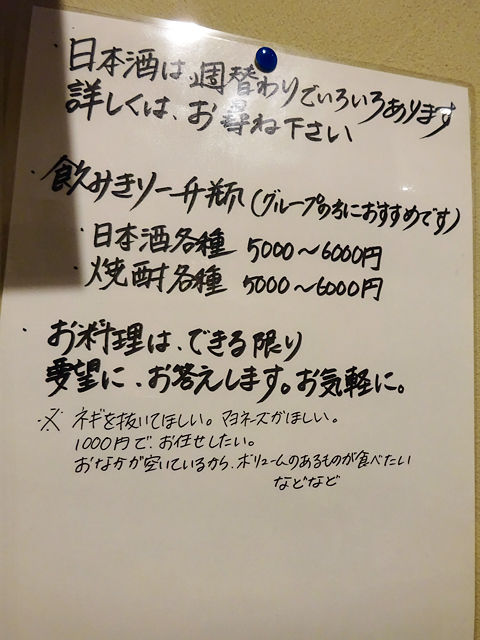 日本酒は、週替わりでいろいろあります
詳しくは、お尋ね下さい
・飲みきり一升瓶(グループの方におすすめです)
・日本酒各種 5000〜6000円
・焼酎各種 5000〜6000円
・お料理は、できる限り
要望に、お答えします。お気軽に。
※ネギを抜いてほしい。マヨネーズがほしい。
1000円で、お任せしたい。
おなかが空いているから、ボリュームのあるものが食べたい
などなど